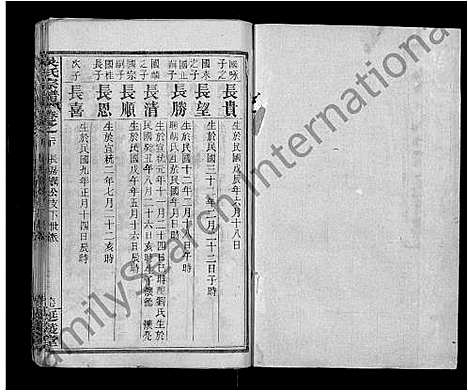 國咏之子
長貴
生於民國戊辰年六月十八日
國泰之子
長望
生於民國三十二年二月二十三日子時
國正之子
長勝
生於民國十二年
國麟之子
長清
生於宣統元年十一月二十四日巳時配劉氏生於
民國癸丑年八月二十六日亥時生子
國宗嗣子
長順
生於民國戊午年五月十六日辰時
國桂長子
長恩
生於宣統二年七月二十二亥時
次子
長喜
生於民國九年正月十四日辰時
氏宗譜
FamilySearch International